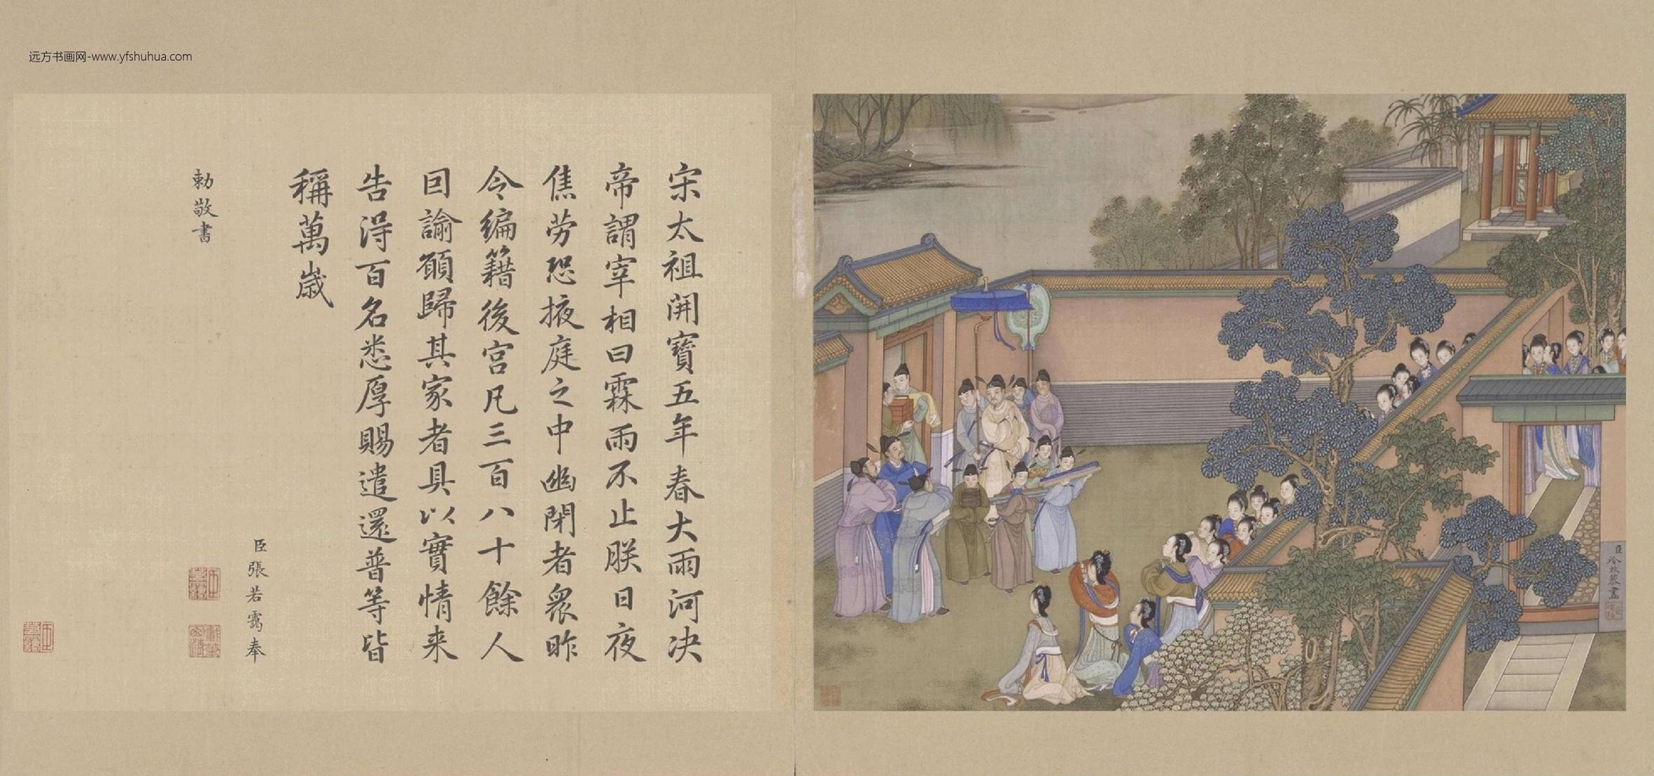 远方书画网-www.yfshuhua.com
宋太祖開寶五年春大雨河决
帝謂宰相曰霖雨不止朕日夜
焦劳恐掖庭之中幽閉者衆昨
令编籍後宫凡三百八十餘人
因諭願歸其家者具以實情来
告得百名悉厚賜遣還普等皆
稱萬歲
臣張若靄奉
勅敬書
臣冷枚恭畫